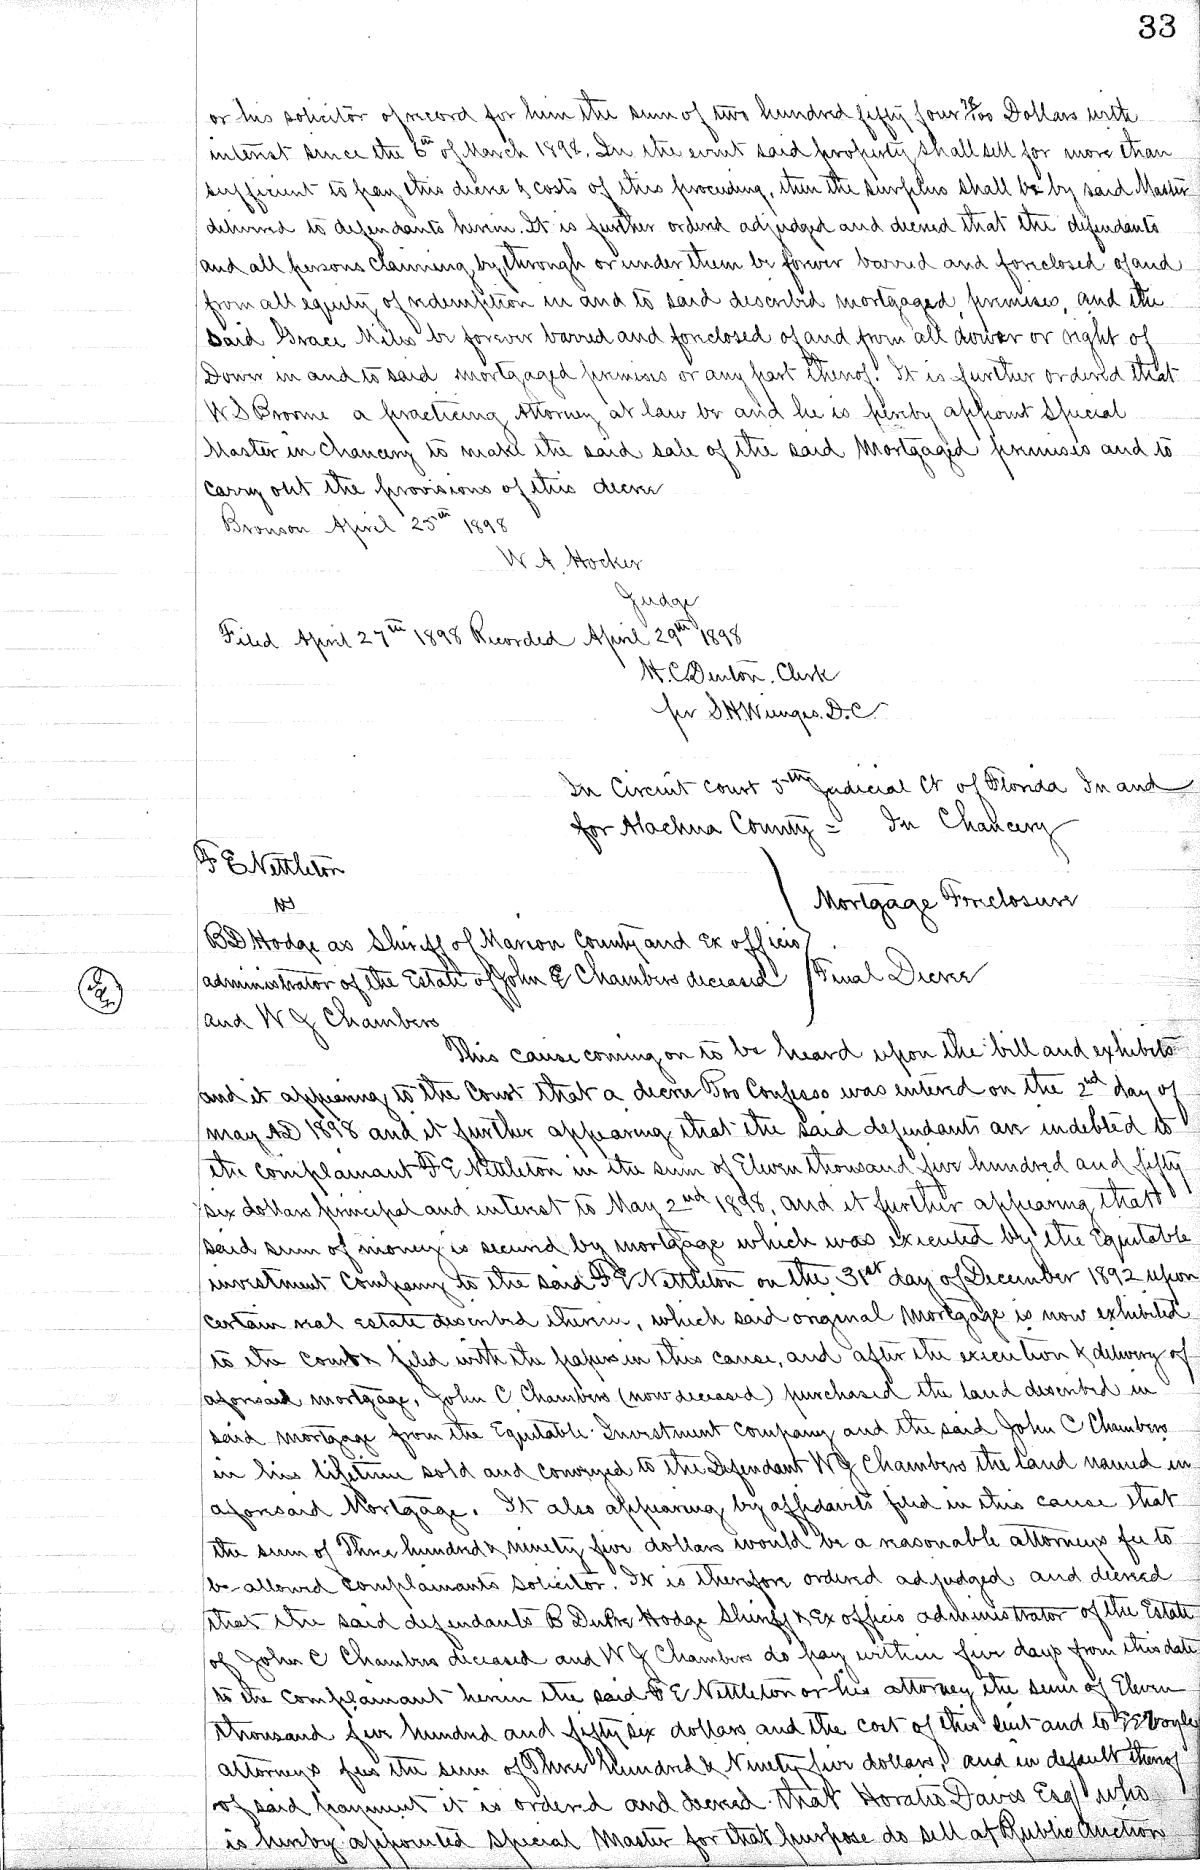 33
or his solicitor of record for him the sum of two hundred fifty four 78/100 Dollars with
interest since the 6th of March 1898. In the event said property shall sell for more than
sufficient to pay this decree & costs of this proceeding, then the surplus shall be by said Master
delivered to defendants herein. It is further ordered adjudged and decreed that the defendants
and all persons claiming by, through or under them be forever barred and foreclosed of and
from all equity of redemption in and to said described mortgaged premises, and the
said Grace Miles be forever barred and foreclosed of and from all dower or right of
Dower in and to said mortgaged premises or any part thereof. It is further ordered that
W S Broome a practicing Attorney at law be and he is hereby appoint Special
Master in Chancery to make the said sale of the said Mortgaged premises and to
carry out the provisions of this decree
Bronson April 25th 1898
W. A. Hocker
Judge
Filed April 27th 1898 Recorded April 29th 1898
H. C. Denton. Clerk
per S. H. Wienges. D. C.
In Circuit court 5th Judicial Ct of Florida In and
for Alachua County = In Chancery
F E Nettleton
vs
Mortgage Foreclosure
B D Hodge as Sheriff of Marion County and Ex officio
administrator of the Estate of John C Chambers deceased
Final Decree
and W J Chambers
This cause coming on to be heard upon the bill and exhibits
and it appearing to the Court that a decree Pro Confesso was entered on the 2nd day of
May AD 1898 and it further appearing that the said defendants are indebted to
the complainant F E Nettleton in the sum of Eleven thousand five hundred and fifty
six dollars principal and interest to May 2nd 1898, and it further appearing that
said sum of money is secured by mortgage which was executed by the Equitable
investment Company to the said F E Nettleton on the 31st day of December 1892 upon
certain real estate described therein, which said original Mortgage is now exhibited
to the court & filed with the papers in this cause, and after the execution & delivery of
aforesaid mortgage, John C Chambers (now deceased) purchased the land described in
said mortgage from the Equitable Investment Company and the said John C Chambers
in his lifetime sold and conveyed to the Defendant W J Chambers the land named in
aforesaid Mortgage. It also appearing by affidavits filed in this cause that
the sum of Three hundred & ninety five dollars would be a reasonable attorneys fee to
be allowed complainants solicitor. It is therefore ordered adjudged and decreed
that the said defendants B DuPre Hodge Sheriff & Ex officio administrator of the Estate
of John C Chambers deceased and W J Chambers do pay within five days from this date
to the complainant herein the said F E Nettleton or his attorney the sum of Eleven
thousand five hundred and fifty six dollars and the cost of this suit and to Voyle
attorneys fees the sum of Three hundred & Ninety five dollars, and in default thereof
of said payment it is ordered and decreed that Horatio Davis Esq who
is hereby appointed Special Master for that purpose do sell at Public Auction